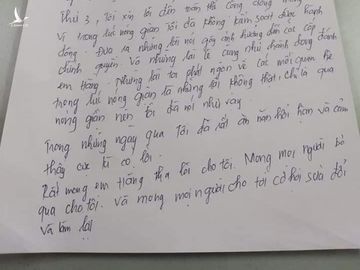 Thứ 3, Tôi xin lỗi đến
Vì trong lúc nóng giận tôi đã không kiểm soát được hành
động. Đưa ra những lời nói gây ảnh hưởng đến các cấp
chính quyền và những lời lẽ cũng như hành động đánh
em Hằng. Những lời tôi phát ngôn về các mối quan hệ
trong lúc nóng giận là những lời không thật, chỉ là quá
nóng giận nên tôi đã nói như vậy.
Trong những ngày qua tôi đã rất ăn năn hối hận và cảm
thấy cực kì có lỗi.
Rất mong em Hằng tha lỗi cho tôi. Mong mọi người bỏ
qua cho tôi. Và mong mọi người cho tôi cơ hội sửa đổi
và làm lại